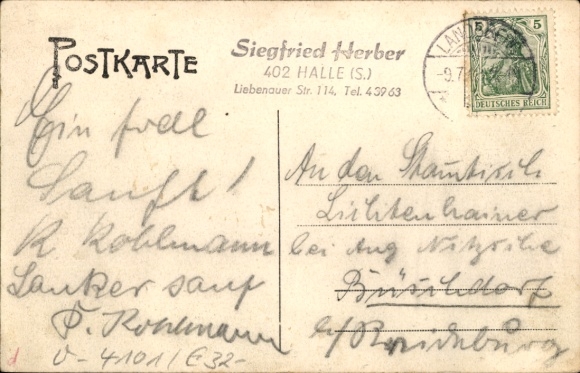 POSTKARTE
Siegfried Herber
402 HALLE (S.)
Liebenauer Str. 114, Tel. 43963
5 5
DEUTSCHES REICH
LANDSBERG
-9.7.
Ein
Sauft!
K Kohlmann
Lanker sauf
P. Kohlmann
An den Stamtisch
Lichtenhainer
bei Aug Nitzsche
Büschdorf
b/
v-4101/E32-
d